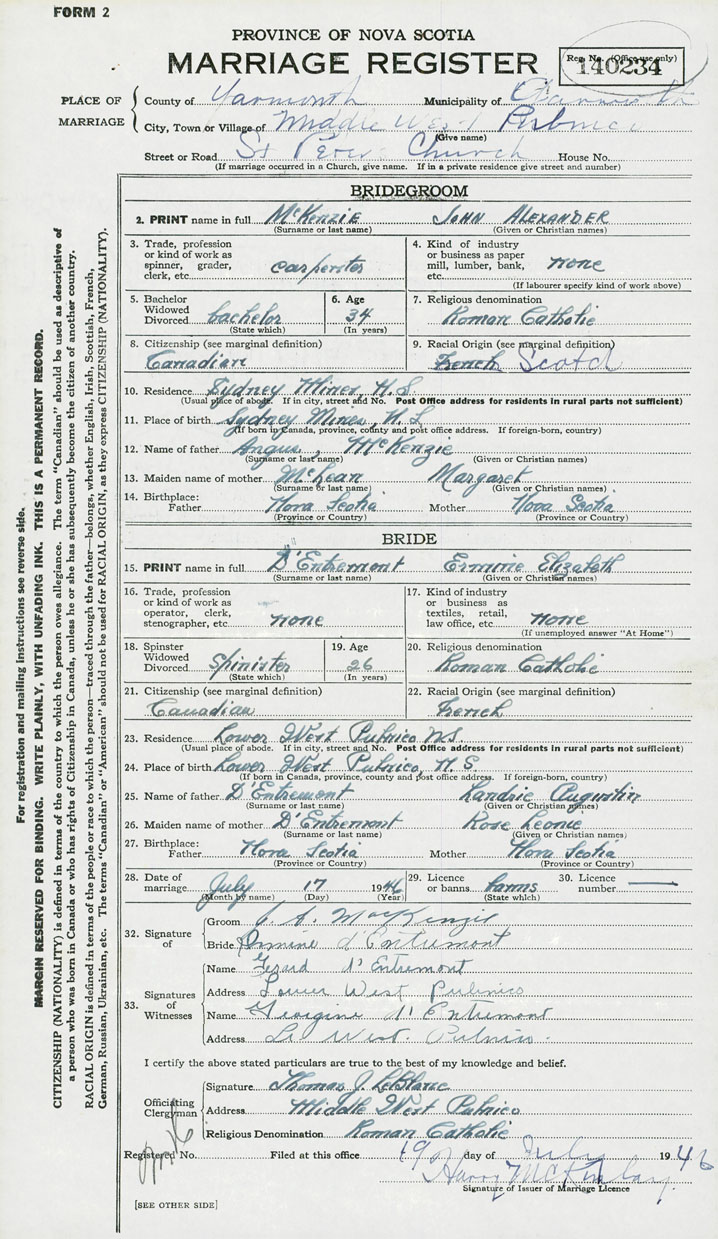 FORM 2
PROVINCE OF NOVA SCOTIA
MARRIAGE REGISTER
Reg. No. (Office use only)
140234
PLACE OF MARRIAGE
County of Yarmouth Municipality of
City, Town or Village of Middle West Pubnico
(Give name)
Street or Road St Peter's Church House No.
(If marriage occurred in a Church, give name. If in a private residence give street and number)
BRIDEGROOM
2. PRINT name in full McKenzie John Alexander
(Surname or last name) (Given or Christian names)
3. Trade, profession or kind of work as spinner, grader, clerk, etc. carpenter
4. Kind of industry or business as paper mill, lumber, bank, etc. none
(If labourer specify kind of work above)
5. Bachelor Widowed Divorced bachelor
(State which)
6. Age 34
(In years)
7. Religious denomination
Roman Catholic
8. Citizenship (see marginal definition)
Canadian
9. Racial Origin (see marginal definition)
French Scotch
10. Residence Sydney Mines, N.S
(Usual place of abode. If in city, street and No. Post Office address for residents in rural parts not sufficient)
11. Place of birth Sydney Mines, N.S
(If born in Canada, province, county and post office address. If foreign-born, country)
12. Name of father Angus, McKenzie
(Surname or last name) (Given or Christian names)
13. Maiden name of mother McLean Margaret
(Surname or last name) (Given or Christian names)
14. Birthplace: Father Nova Scotia Mother Nova Scotia
(Province or Country) (Province or Country)
BRIDE
15. PRINT name in full D'Entremont Ermine Elizabeth
(Surname or last name) (Given or Christian names)
16. Trade, profession or kind of work as operator, clerk, stenographer, etc. none
17. Kind of industry or business as textiles, retail, law office, etc. none
(If unemployed answer "At Home")
18. Spinster Widowed Divorced spinister
(State which)
19. Age 26
(In years)
20. Religious denomination
Roman Catholic
21. Citizenship (see marginal definition)
Canadian
22. Racial Origin (see marginal definition)
French
23. Residence Lower West Pubnico N.S.
(Usual place of abode. If in city, street and No. Post Office address for residents in rural parts not sufficient)
24. Place of birth Lower West Pubnico, N.S.
(If born in Canada, province, county and post office address. If foreign-born, country)
25. Name of father D'Entremont Landrie Augustin
(Surname or last name) (Given or Christian names)
26. Maiden name of mother D'Entremont Rose Leonie
(Surname or last name) (Given or Christian names)
27. Birthplace: Father Nova Scotia Mother Nova Scotia
(Province or Country) (Province or Country)
28. Date of marriage July 17 1946
(Month by name) (Day) (Year)
29. Licence or banns banns
(State which)
30. Licence number
32. Signature of
Groom J. A. MacKenzie
Bride Ermine d'Entremont
33. Signatures of Witnesses
Name Gerard d'Entremont
Address Lower West Pubnico
Name Georgine d'Entremont
Address Lr West Pubnico
I certify the above stated particulars are true to the best of my knowledge and belief.
Officiating Clergyman
Signature Thomas J. LeBlanc
Address Middle West Pubnico
Religious Denomination Roman Catholic
Registered No. Filed at this office 19 day of July 1946
Harry McKinlay
Signature of Issuer of Marriage Licence
[SEE OTHER SIDE]
For registration and mailing instructions see reverse side.
MARGIN RESERVED FOR BINDING. WRITE PLAINLY, WITH UNFADING INK. THIS IS A PERMANENT RECORD.
CITIZENSHIP (NATIONALITY) is defined in terms of the country to which the person owes allegiance. The term "Canadian" should be used as descriptive of
a person who was born in Canada or who has rights of Citizenship in Canada, unless he or she has subsequently become the citizen of another country.
RACIAL ORIGIN is defined in terms of the people or race to which the person—traced through the father—belongs, whether English, Irish, Scottish, French,
German, Russian, Ukrainian, etc. The terms "Canadian" or "American" should not be used for RACIAL ORIGIN, as they express CITIZENSHIP (NATIONALITY).